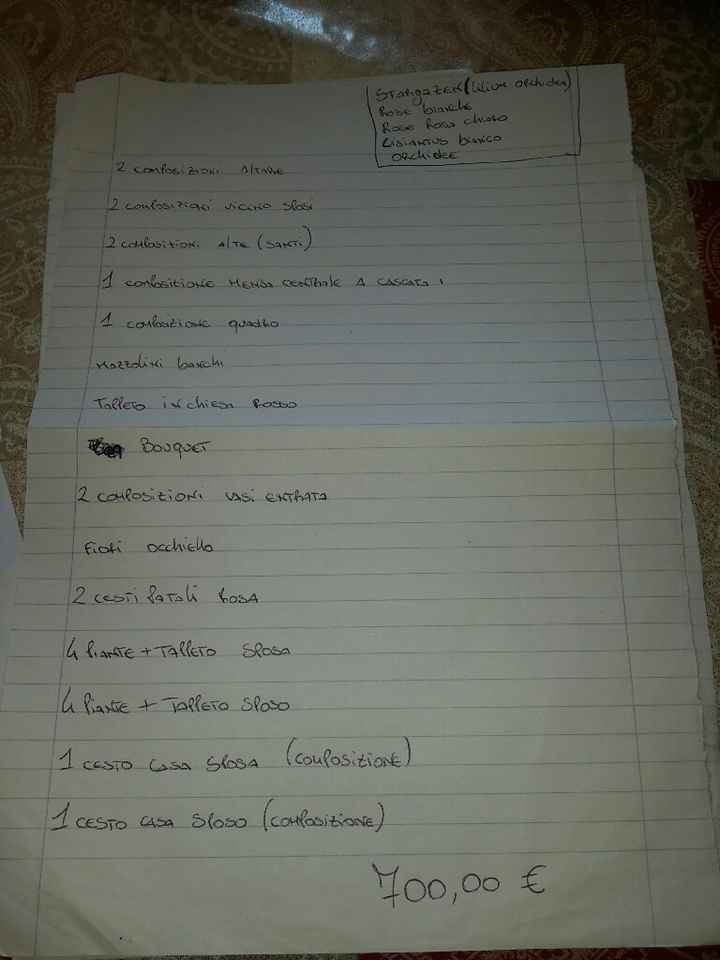 STARGAZER (Lilium orchidea)
Rose bianche
Rose Rosa chiaro
Lisiantus bianco
ORchidee
2 composizioni Altare
2 composizioni vicino sposi
2 composizioni Alte (SANTI)
1 composizione MENSA CENTRALE A CASCATA
1 composizione quadro
Mazzolini banchi
TAPPETO in chiesa Rosso
BOUQUET
2 composizioni VASI ENTRATA
Fiori occhiello
2 cesti PETALI ROSA
4 PIANTE + TAPPETO SPOSA
4 PIANTE + TAPPETO SPOSO
1 CESTO CASA SPOSA (composizione)
1 CESTO CASA SPOSO (composizione)
700,00 €